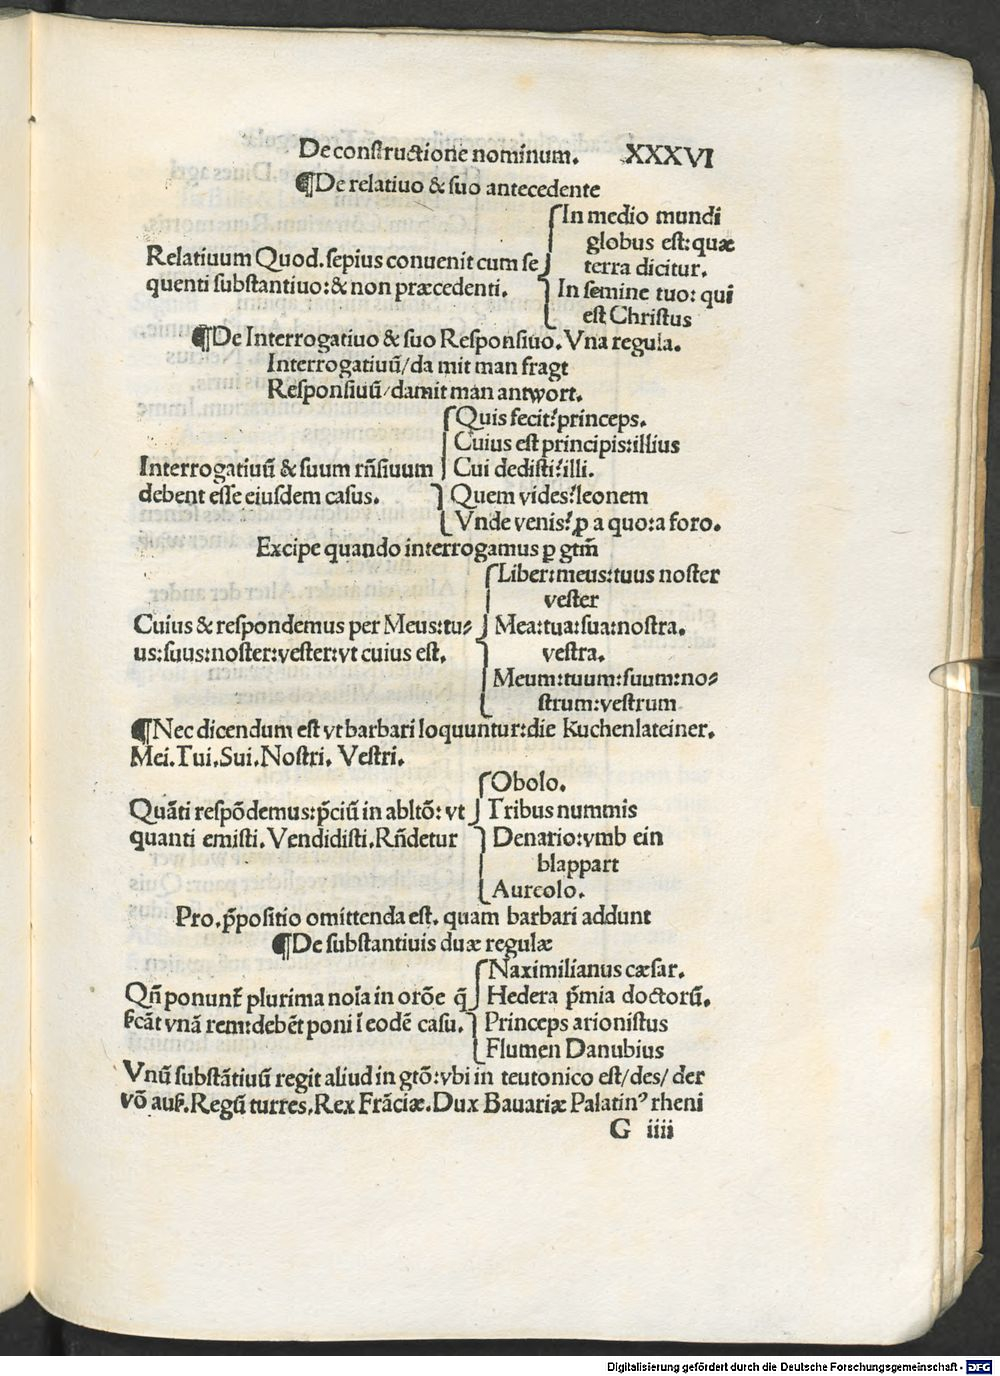 De constructione nominum. XXXVI
¶De relatiuo & suo antecedente
In medio mundi
globus est: quæ
Relatiuum Quod. sepius conuenit cum se
terra dicitur.
quenti substantiuo: & non præcedenti.
In semine tuo: qui
est Christus
¶De Interrogatiuo & suo Responsiuo. Vna regula.
Interrogatiuū/da mit man fragt
Responsiuū/damit man antwort.
Quis fecit? princeps.
Cuius est principis: illius
Interrogatiuū & suum rñsiuum
Cui dedisti? illi.
debent esse eiusdem casus.
Quem vides? leonem
Vnde venis? ꝓ a quo: a foro.
Excipe quando interrogamus ꝑ gtm̄
Liber: meus: tuus noster
vester
Cuius & respondemus per Meus: tu⸗
Mea: tua: sua: nostra.
us: suus: noster: vester: vt cuius est.
vestra.
Meum: tuum: suum: no⸗
strum: vestrum
¶Nec dicendum est vt barbari loquuntur: die Kuchenlateiner.
Mei. Tui. Sui. Nostri. Vestri.
Obolo.
Quāti respōdemus: p̄ciū in abltō: vt
Tribus nummis
quanti emisti. Vendidisti. Rñdetur
Denario: vmb ein
blappart
Aureolo.
Pro. p̄positio omittenda est. quam barbari addunt
¶De substantiuis duæ regulæ
Naximilianus cæsar.
Qñ ponunt̄ plurima noīa in orōe q̄
Hedera p̄mia doctorū.
ſcāt vnā rem: debēt poni ī eodē casu.
Princeps arionistus
Flumen Danubius
Vnū substātiuū regit aliud in gtō: vbi in teutonico est/des/der
vō auſ. Regū turres. Rex Frāciæ. Dux Bauariæ Palatinꝰ rheni
G iiii
Digitalisierung gefördert durch die Deutsche Forschungsgemeinschaft - DFG